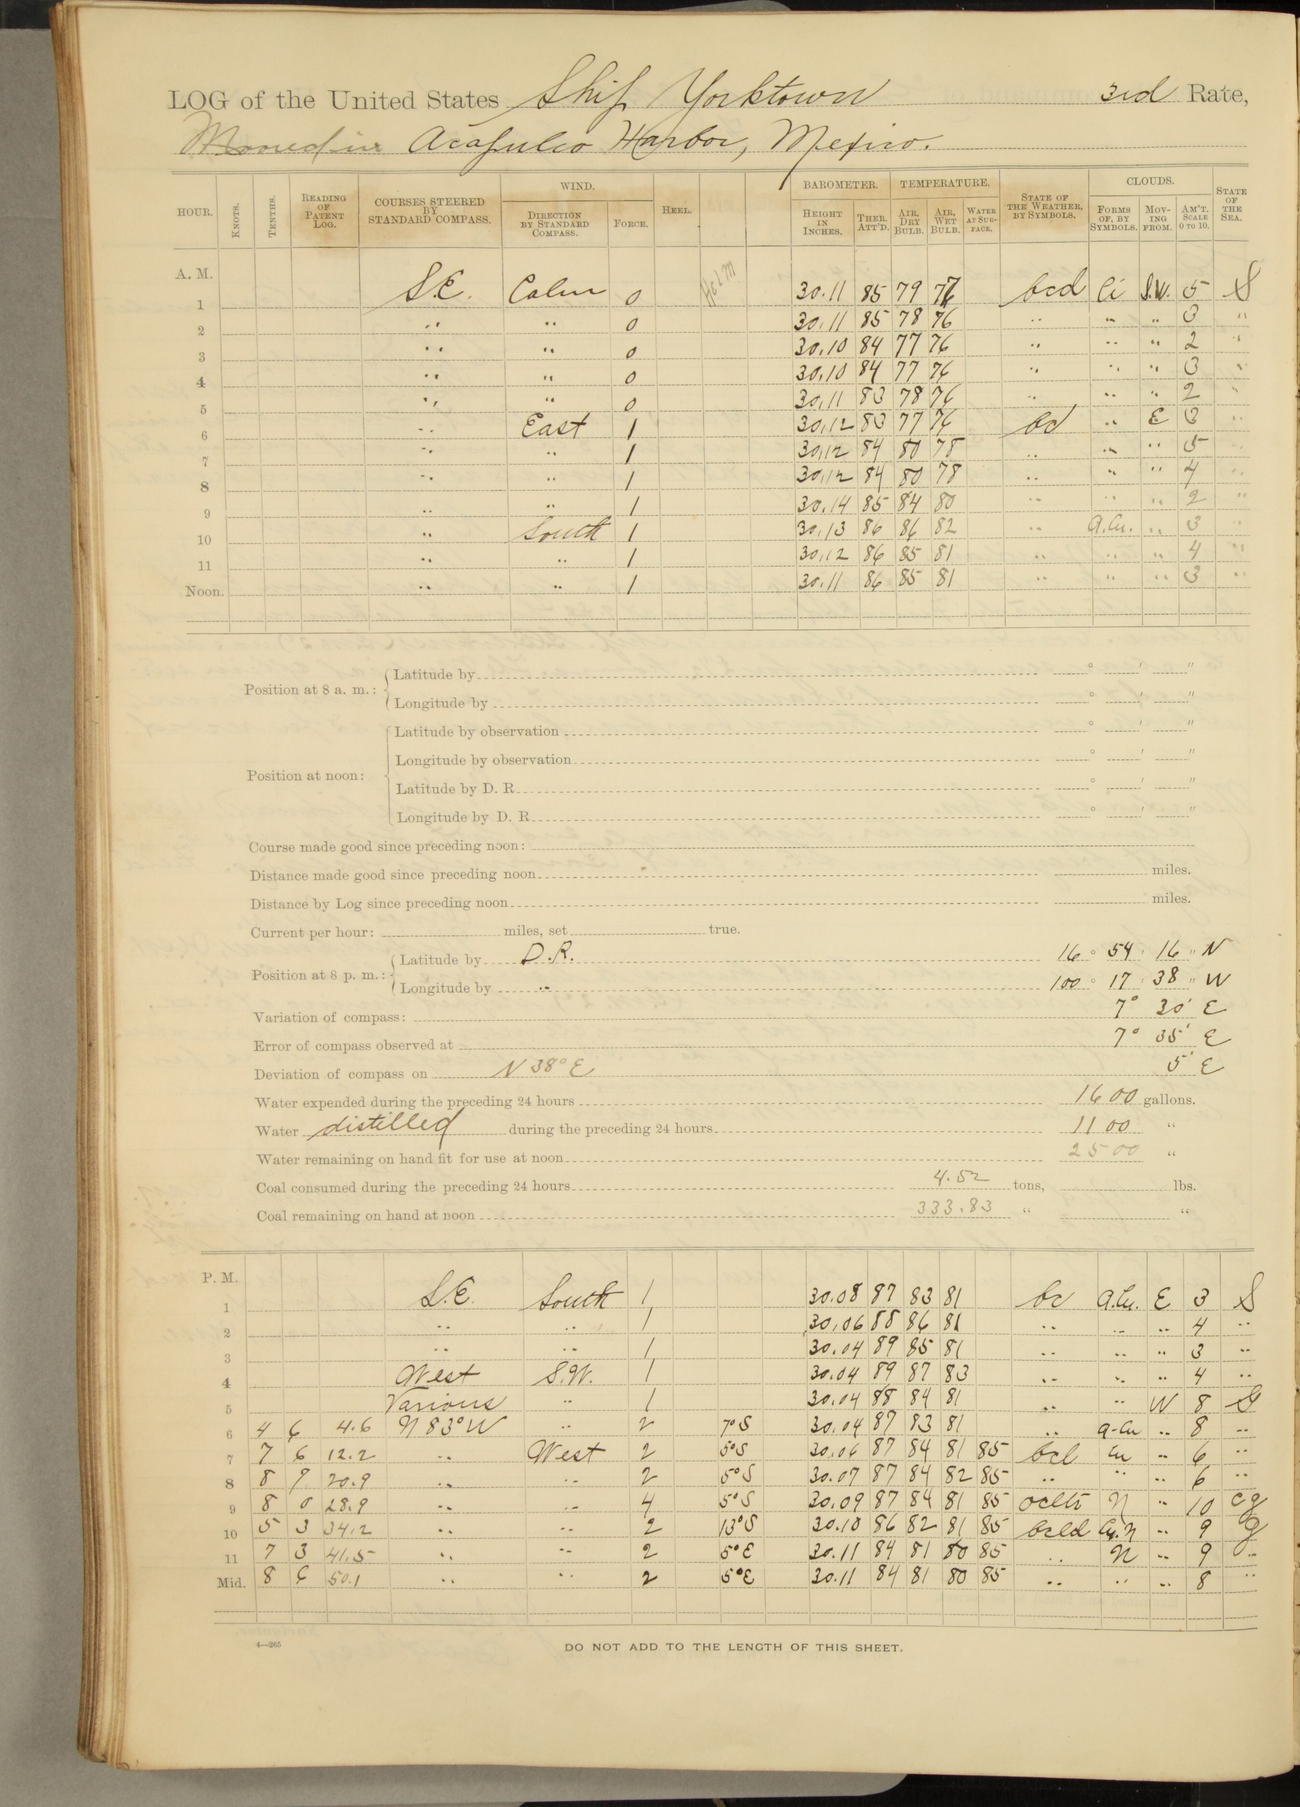 LOG of the United States Ship Yorktown 3rd Rate,
Moored in Acapulco Harbor, Mexico.
HOUR. KNOTS. TENTHS. READING OF PATENT LOG. COURSES STEERED BY STANDARD COMPASS. WIND. DIRECTION BY STANDARD COMPASS. FORCE. HEEL. BAROMETER. HEIGHT IN INCHES. THER. ATT'D. TEMPERATURE. AIR, DRY BULB. AIR, WET BULB. WATER AT SURFACE. STATE OF THE WEATHER, BY SYMBOLS. CLOUDS. FORMS OF, BY SYMBOLS. MOVING FROM. AM'T. SCALE 0 TO 10. STATE OF THE SEA.
A. M.
1 S.E. Calm 0 30.11 85 79 76 bcd Ci S.W. 5 S
2 " " 0 30.11 85 78 76 " " " 3 "
3 " " 0 30.10 84 77 76 " " " 2 "
4 " " 0 30.10 84 77 76 " " " 3 "
5 " " 0 30.11 83 78 76 " " " 2 "
6 " East 1 30.12 83 77 76 bd " E 3 "
7 " " 1 30.12 84 80 78 " " " 5 "
8 " " 1 30.12 84 80 78 " " " 4 "
9 " " 1 30.14 85 84 80 " " " 2 "
10 " South 1 30.13 86 86 82 " a.Cu. " 3 "
11 " " 1 30.12 86 85 81 " " " 4 "
Noon. " " 1 30.11 86 85 81 " " " 3 "
Position at 8 a. m.: Latitude by ° ' "
Longitude by ° ' "
Position at noon: Latitude by observation ° ' "
Longitude by observation ° ' "
Latitude by D. R. ° ' "
Longitude by D. R. ° ' "
Course made good since preceding noon:
Distance made good since preceding noon miles.
Distance by Log since preceding noon miles.
Current per hour: miles, set true.
Position at 8 p. m.: Latitude by D.R. 16 ° 54 ' 16 " N
Longitude by " 100 ° 17 ' 38 " W
Variation of compass: 7° 30' E
Error of compass observed at 7° 35' E
Deviation of compass on N 38° E 5' E
Water expended during the preceding 24 hours 1600 gallons.
Water distilled during the preceding 24 hours 1100 "
Water remaining on hand fit for use at noon 2500 "
Coal consumed during the preceding 24 hours 4.52 tons, lbs.
Coal remaining on hand at noon 333.83 " "
P. M.
1 S.E. South 1 30.08 87 83 81 bc a.Cu. E 3 S
2 " " 1 30.06 88 86 81 " " " 4 "
3 " " 1 30.04 89 85 81 " " " 3 "
4 West S.W. 1 30.04 89 87 83 " " " 4 "
5 Various " 1 30.04 88 84 81 " " W 8
6 4 6 4.6 N 83° W " 2 7°S 30.04 87 83 81 " a-Cu " 8 "
7 7 6 12.2 " West 2 5°S 30.06 87 84 81 85 bcl Cu " 6 "
8 8 7 20.9 " " 2 5°S 30.07 87 84 82 85 " " " 6 "
9 8 0 28.9 " " 4 5°S 30.09 87 84 81 85 N " 10
10 5 3 34.2 " " 2 13°S 30.10 86 82 81 85 bcld Cu.N " 9
11 7 3 41.5 " " 2 5°E 30.11 84 81 80 85 " N " 9 "
Mid. 8 6 50.1 " " 2 5°E 30.11 84 81 80 85 " " " 8 "
4—265
DO NOT ADD TO THE LENGTH OF THIS SHEET.